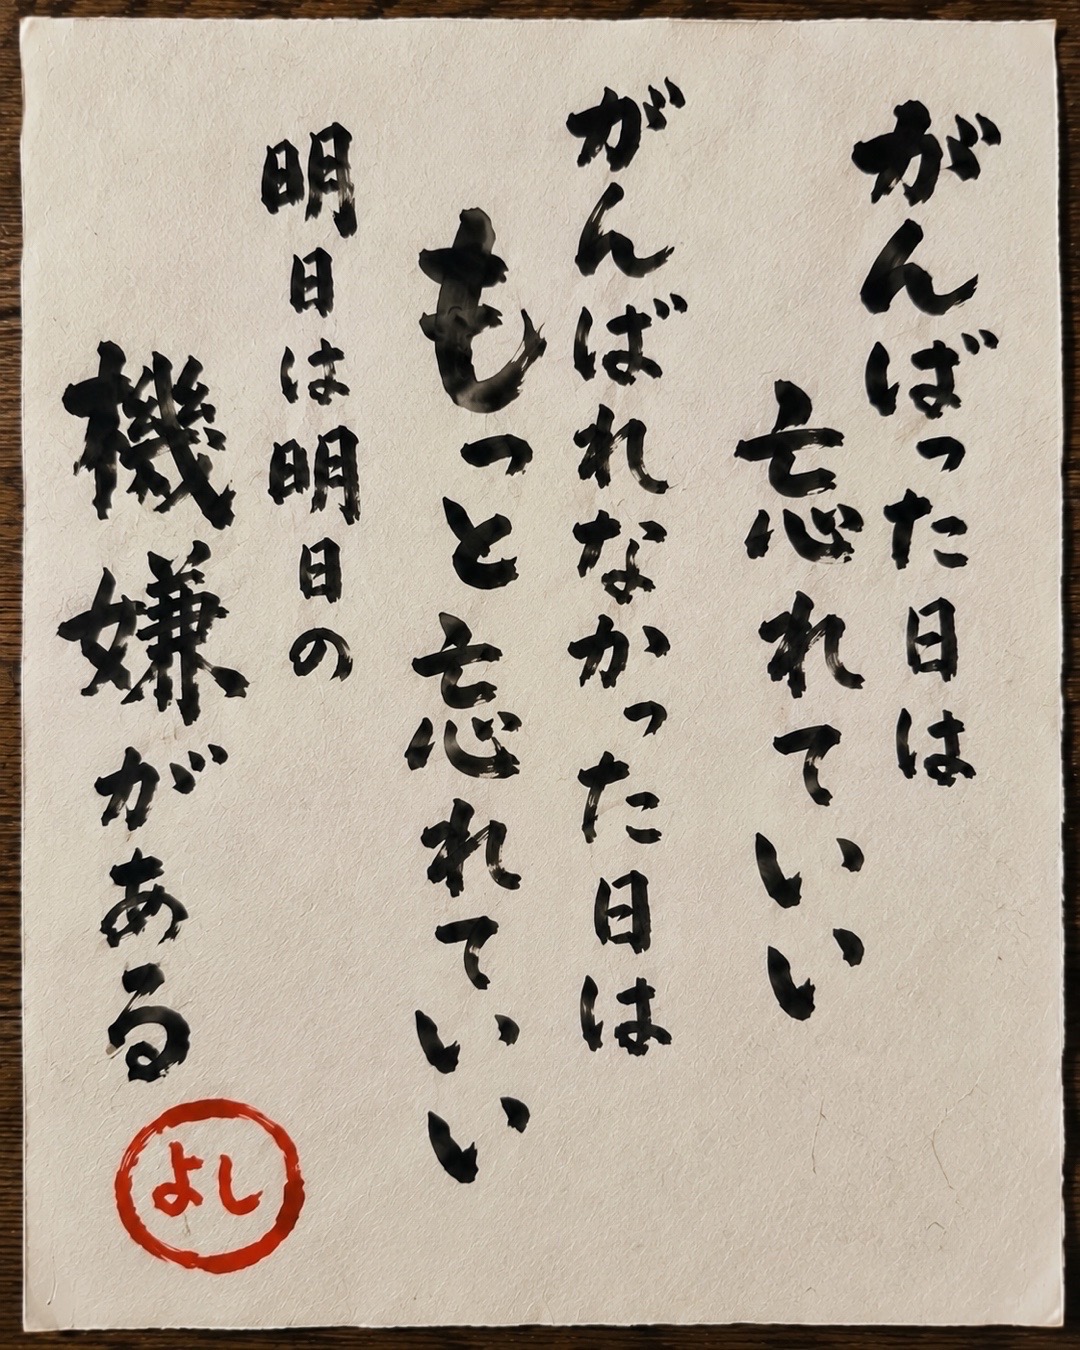 がんばった日は
忘れていい
がんばれなかった日は
もっと忘れていい
明日は明日の
機嫌がある
よし